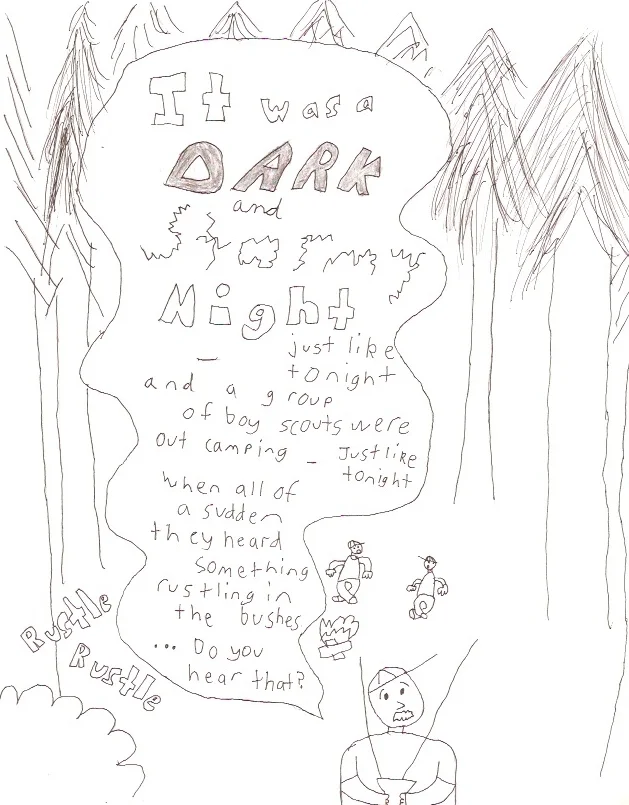 It was a
DARK
and
Stormy
Night
— just like
tonight
and a group
of boy scouts were
out camping - Just like
tonight
when all of
a sudden
they heard
something
rustling in
the bushes
... Do you
hear that?
Rustle
Rustle